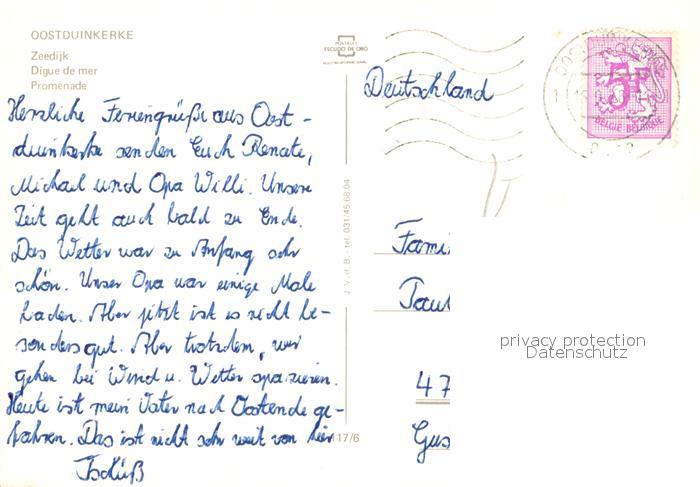 OOSTDUINKERKE
Zeedijk
Digue de mer
Promenade
Herzliche Feriengrüße aus Oost-
duinkerke senden Euch Renate,
Michael und Opa Willi. Unsere
Zeit geht auch bald zu Ende.
Das Wetter war zu Anfang sehr
schön. Unser Opa war einige Male
baden. Aber jetzt ist es nicht be-
sonders gut. Aber trotzdem, wir
gehen bei Wind u. Wetter spazieren.
Heute ist mein Vater nach Oostende ge-
fahren. Das ist nicht sehr weit von hier
Tschüß
ESCUDO DE ORO
J. V. d. B. - tel. 031/45.68.04
117/6
Deutschland
5F
BELGIE BELGIQUE
Fami
Tau
47
Gus
privacy protection
Datenschutz